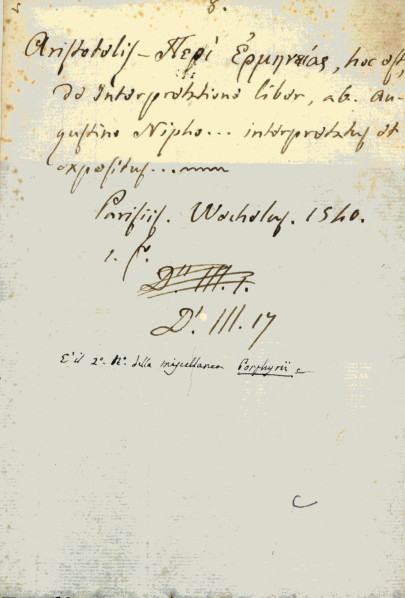 8.
Aristotelis – Περὶ Ἑρμηνείας, hoc est,
de Interpretatione liber, ab. Au-
gustino Nipho... interpretatus et
expositus...
Parisiis. Wechelus. 1540.
1. f.
D'' III. 1.
D'. III. 17
E' il 2º. Nº. della miscellanea Porphyrii